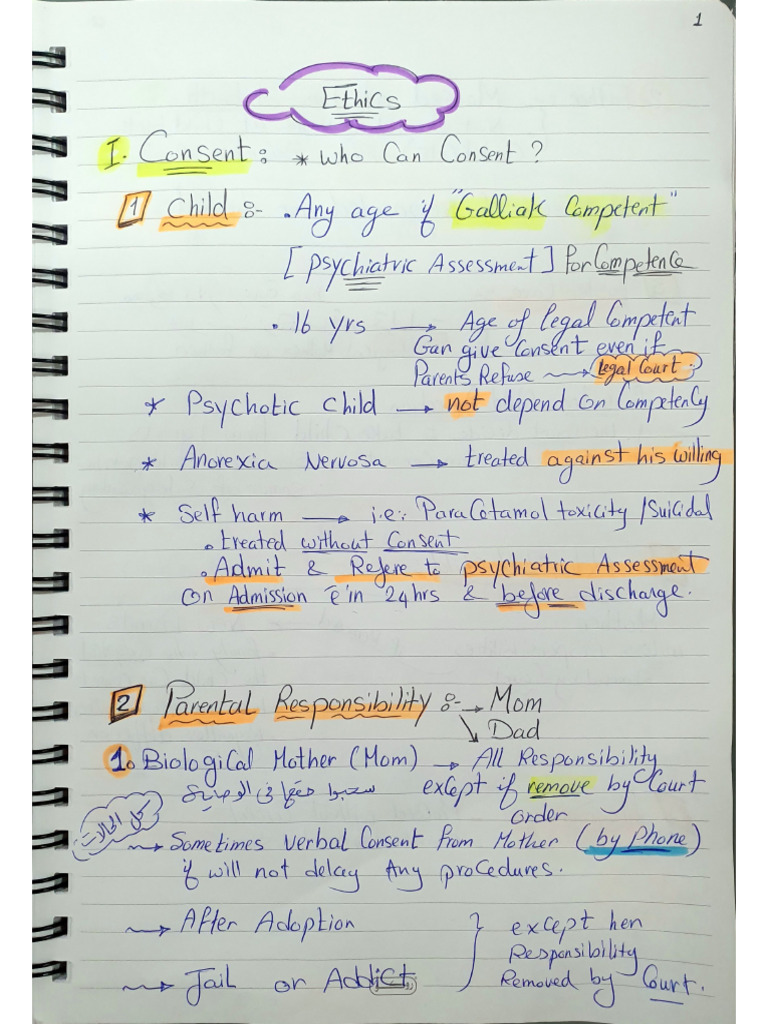 1
Ethics
I. Consent :- * Who Can Consent ?
1 Child :- • Any age if "Galliak Competent"
[Psychiatric Assessment] For Competence
• 16 yrs → Age of legal Competent
Can give Consent even if
Parents Refuse → legal Court
* Psychotic child → not depend on Competency
* Anorexia Nervosa → treated against his willing
* Self harm → i.e: ParaCetamol toxicity / Suicidal
• treated without Consent
• Admit & Refere to psychiatric Assessment
On Admission c̄ in 24 hrs & before discharge.
2 Parental Responsibility :- → Mom
↘ Dad
1. Biological Mother (Mom) → All Responsibility
سحبوا حقها فى الوصاية except if remove by Court
order
كل الحالات
→ Sometimes verbal Consent from Mother (by phone)
if will not delay Any procedures.
→ After Adoption } except hen
Responsibility
→ Jail or Addict Removed by Court.